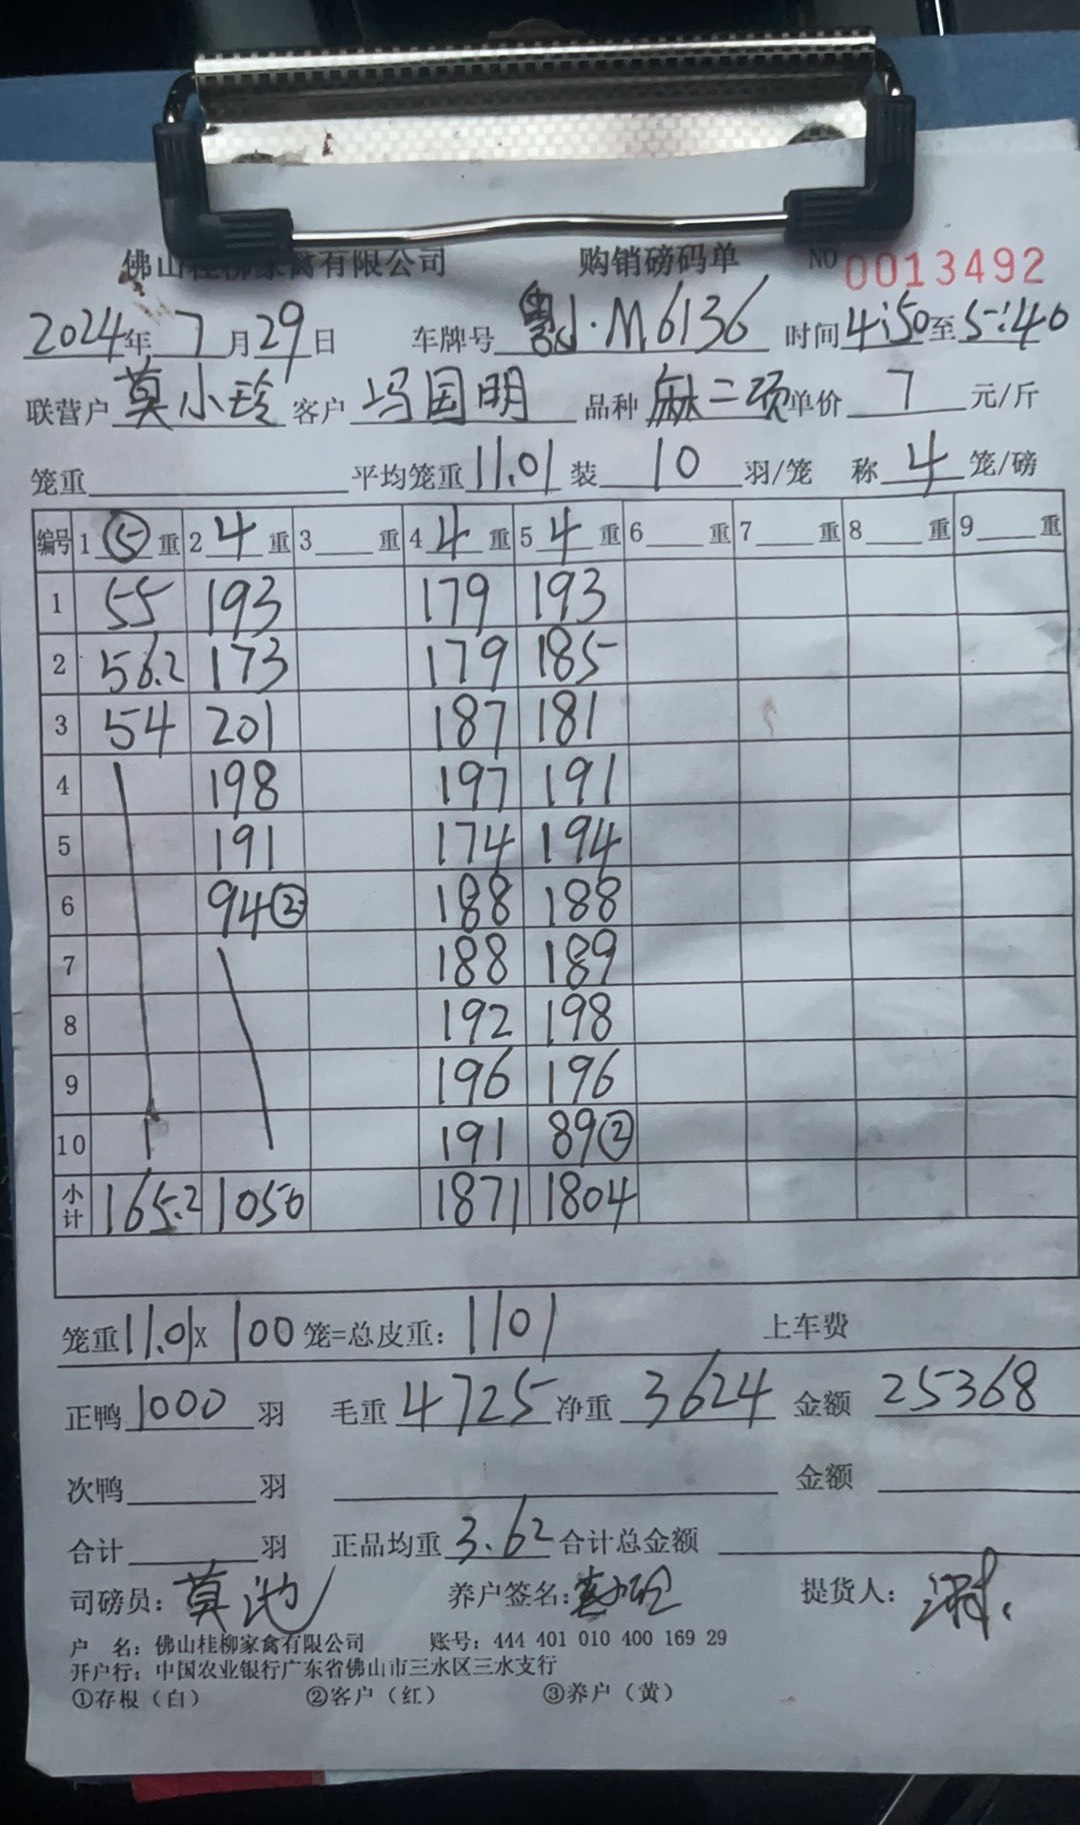 佛山桂柳家禽有限公司 购销磅码单 NO 0013492
2024年 7月29日 车牌号 粤J·M6136 时间4:50至5:40
联营户 莫小玲 客户 冯国明 品种 麻二项 单价 7 元/斤
笼重 平均笼重 11.01 装 10 羽/笼 称 4 笼/磅
编号 1 ⑤ 重 2 4 重 3 重 4 4 重 5 4 重 6 重 7 重 8 重 9 重
1 55 193 179 193
2 56.2 173 179 185
3 54 201 187 181
4 198 197 191
5 191 174 194
6 94② 188 188
7 188 189
8 192 198
9 196 196
10 191 89②
小计 165.2 1050 1871 1804
笼重 11.01x 100 笼=总皮重: 1101 上车费
正鸭 1000 羽 毛重 4725 净重 3624 金额 25368
次鸭 羽 金额
合计 羽 正品均重 3.62 合计总金额
司磅员: 莫池 养户签名: 提货人:
户 名: 佛山桂柳家禽有限公司 账号: 444 401 010 400 169 29
开户行: 中国农业银行广东省佛山市三水区三水支行
①存根（白） ②客户（红） ③养户（黄）